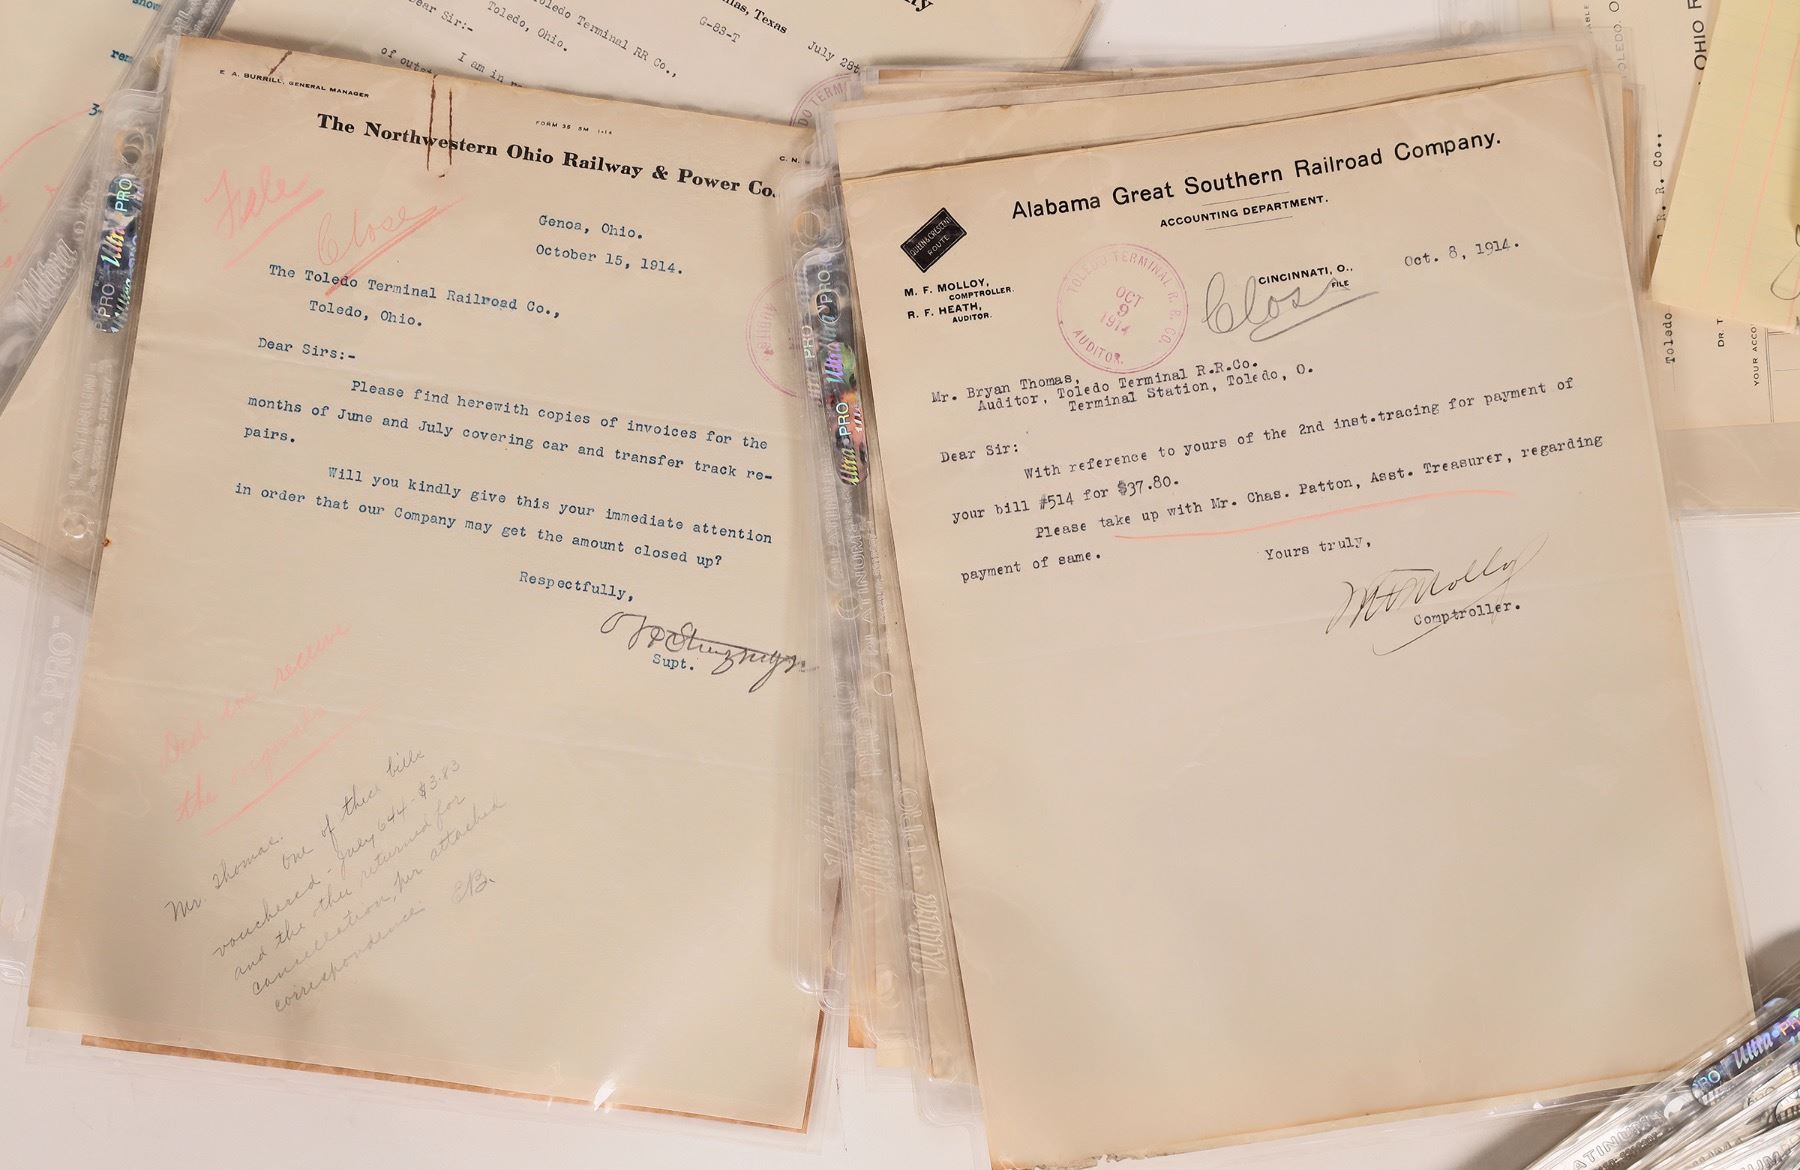 Dallas, Texas
G-83-T
July 28th
Toledo Terminal RR Co.,
Toledo, Ohio.
Dear Sir:-
I am in
E. A. BURRILL, GENERAL MANAGER
FORM 35 5M 1-14
C. N.
The Northwestern Ohio Railway & Power Co.
File
Close
Genoa, Ohio.
October 15, 1914.
The Toledo Terminal Railroad Co.,
Toledo, Ohio.
Dear Sirs:-
Please find herewith copies of invoices for the
months of June and July covering car and transfer track re-
pairs.
Will you kindly give this your immediate attention
in order that our Company may get the amount closed up?
Respectfully,
Supt.
Did we receive
the originals
Mr. Thomas.
One of these bills
vouchered - July 644 - $3.83
and the other returned for
cancellation, per attached
correspondence. EB.
Alabama Great Southern Railroad Company.
ACCOUNTING DEPARTMENT.
QUEEN & CRESCENT
ROUTE
M. F. MOLLOY,
COMPTROLLER.
R. F. HEATH,
AUDITOR.
TOLEDO TERMINAL R. R. CO.
OCT
9
1914
AUDITOR.
Close
CINCINNATI, O.,
FILE
Oct. 8, 1914.
Mr. Bryan Thomas,
Auditor, Toledo Terminal R.R.Co.
Terminal Station, Toledo, O.
Dear Sir:
With reference to yours of the 2nd inst.tracing for payment of
your bill #514 for $37.80.
Please take up with Mr. Chas. Patton, Asst. Treasurer, regarding
payment of same.
Yours truly,
M F Molloy
Comptroller.
OHIO
R. R. Co.,
Toledo
YOUR ACCO
Ultra PRO
Ultra PRO
PLATINUM
Ultra PRO